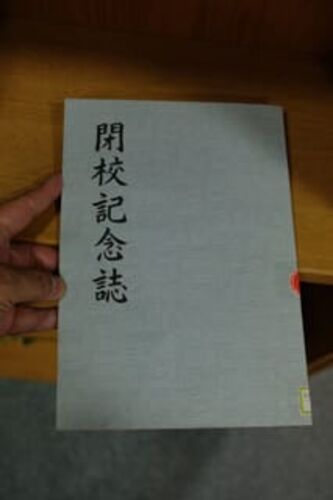 閉校記念誌